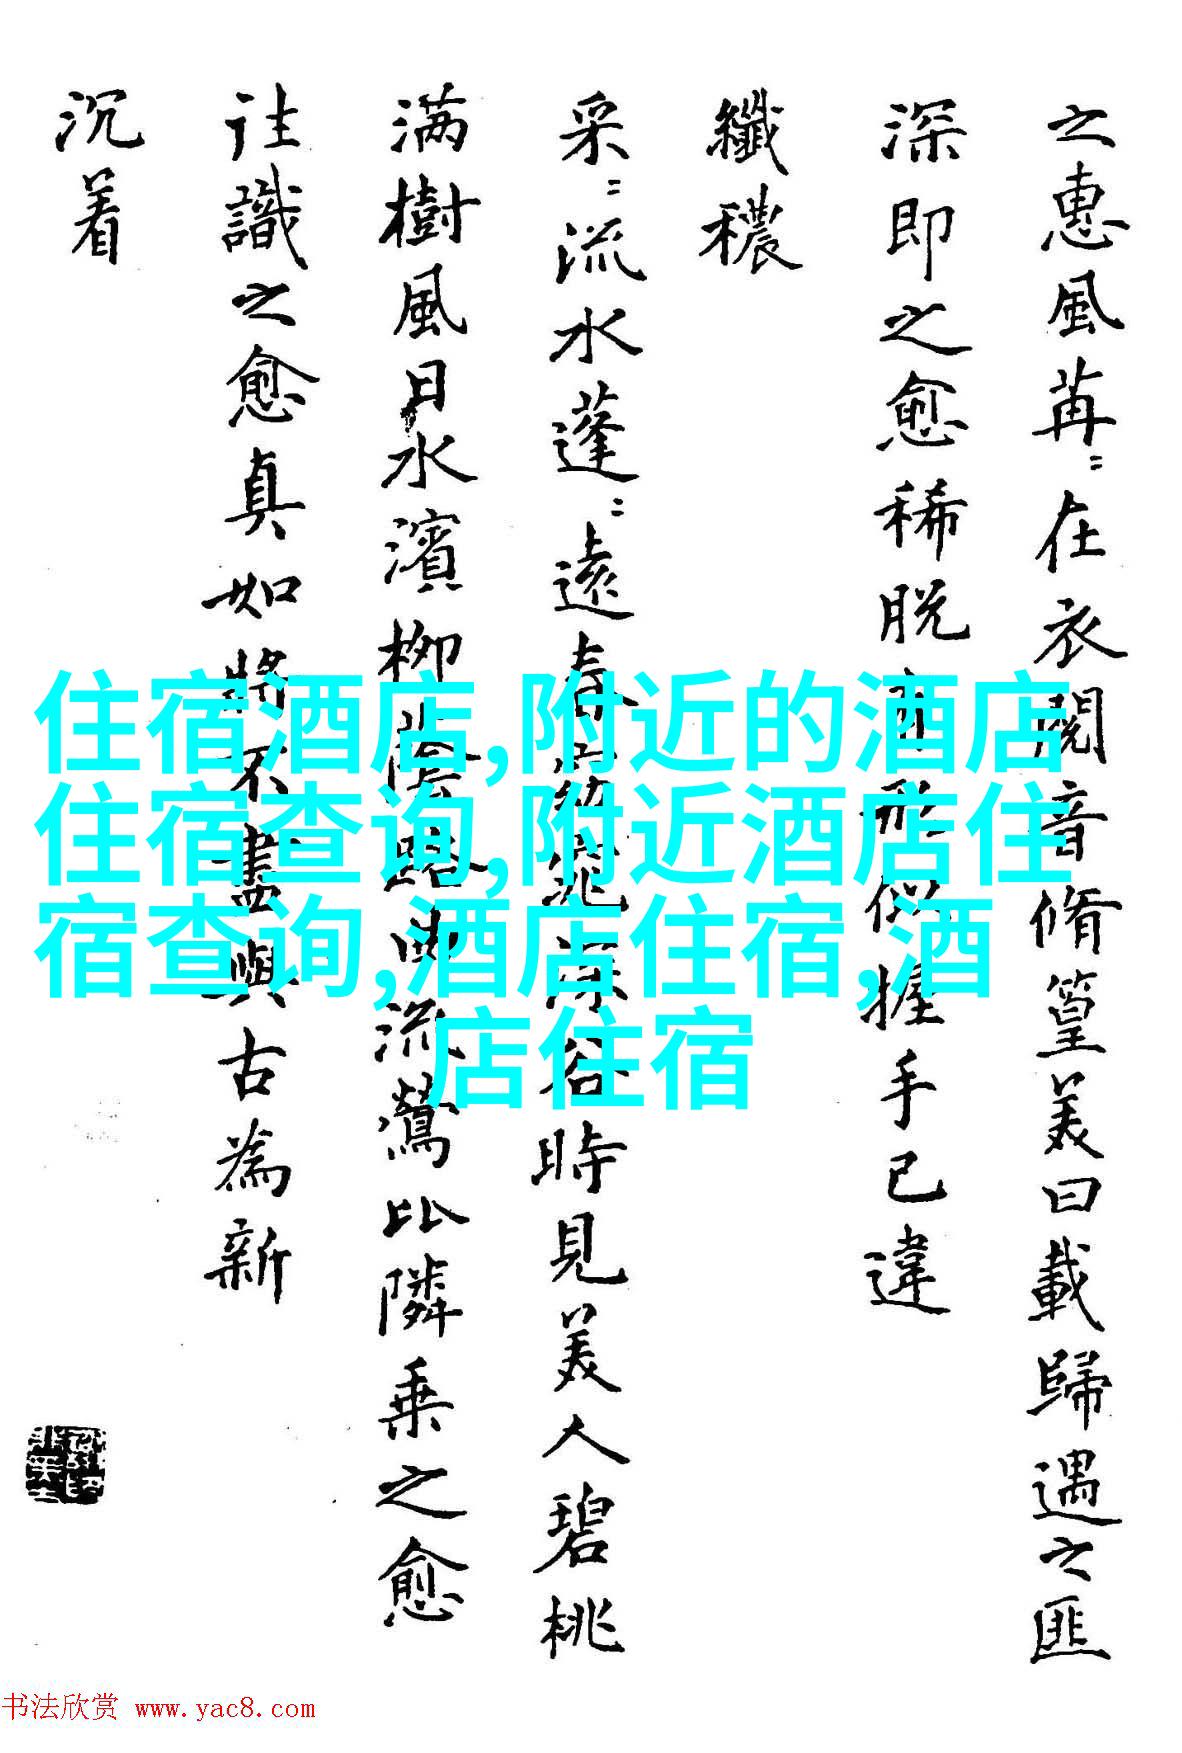 之惠風苒〻在衣閱音脩篁美曰載歸遇之匪
深即之愈稀脱有形似握手已違
纖穠
采〻流水蓬〻遠春窈窕深谷時見美人碧桃
满樹風日水濱柳陰路曲流鶯比隣乗之愈
往識之愈真如將不盡與古為新
沉着
住宿酒店,附近的酒店
住宿查询,附近酒店住
宿查询,酒店住宿,酒
店住宿
书法欣赏 www.yac8.com